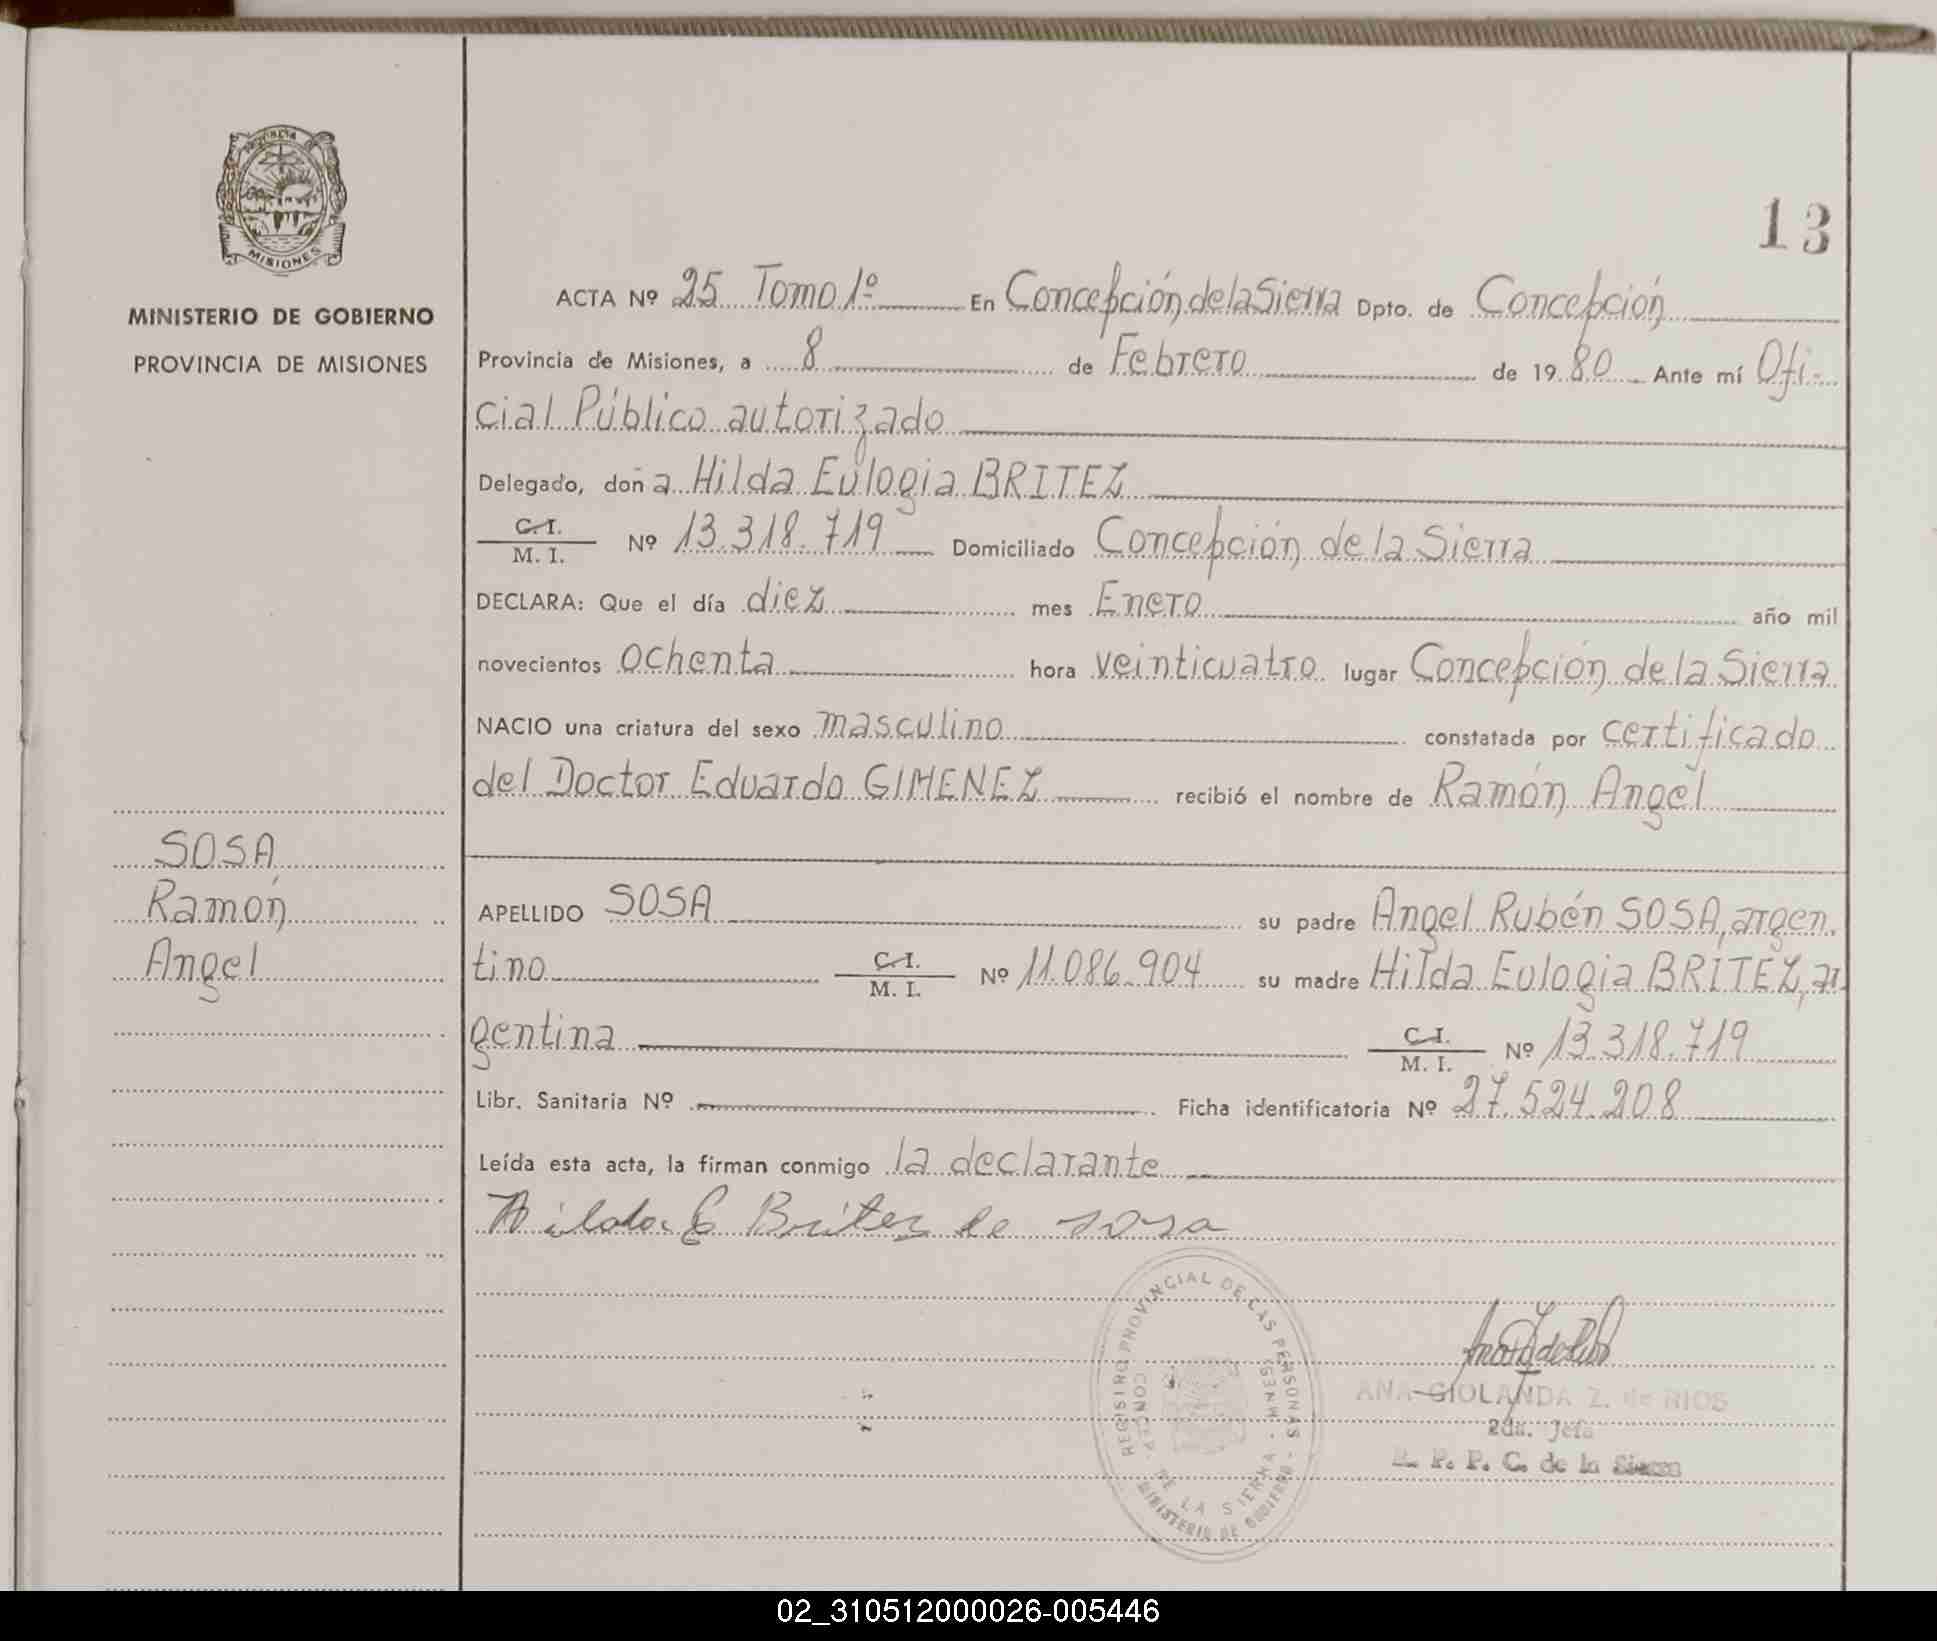 PROVINCIA DE
MISIONES
MINISTERIO DE GOBIERNO
PROVINCIA DE MISIONES
13
ACTA Nº 25 Tomo 1º En Concepción de la Sierra Dpto. de Concepción
Provincia de Misiones, a 8 de Febrero de 1980 Ante mí Ofi-
cial Público autorizado
Delegado, doña Hilda Eulogia BRITEZ
C.I. / M. I. Nº 13.318.719 Domiciliado Concepción de la Sierra
DECLARA: Que el día diez mes Enero año mil
novecientos ochenta hora veinticuatro lugar Concepción de la Sierra
NACIO una criatura del sexo masculino constatada por certificado
del Doctor Eduardo GIMENEZ recibió el nombre de Ramón Angel
SOSA
Ramón
Angel
APELLIDO SOSA su padre Angel Rubén SOSA, argen.
tino C.I. / M. I. Nº 11.086.904 su madre Hilda Eulogia BRITEZ, ar-
gentina C.I. / M. I. Nº 13.318.719
Libr. Sanitaria Nº Ficha identificatoria Nº 27.524.208
Leída esta acta, la firman conmigo la declarante
Hilda E Britez de sosa
REGISTRO PROVINCIAL DE LAS PERSONAS
CONCEP. DE LA SIERRA
MINISTERIO DE GOBIERNO
ANA GIOLANDA Z. de RIOS
2da. Jefa
R. P. P. C. de la Sierra
02_310512000026-005446